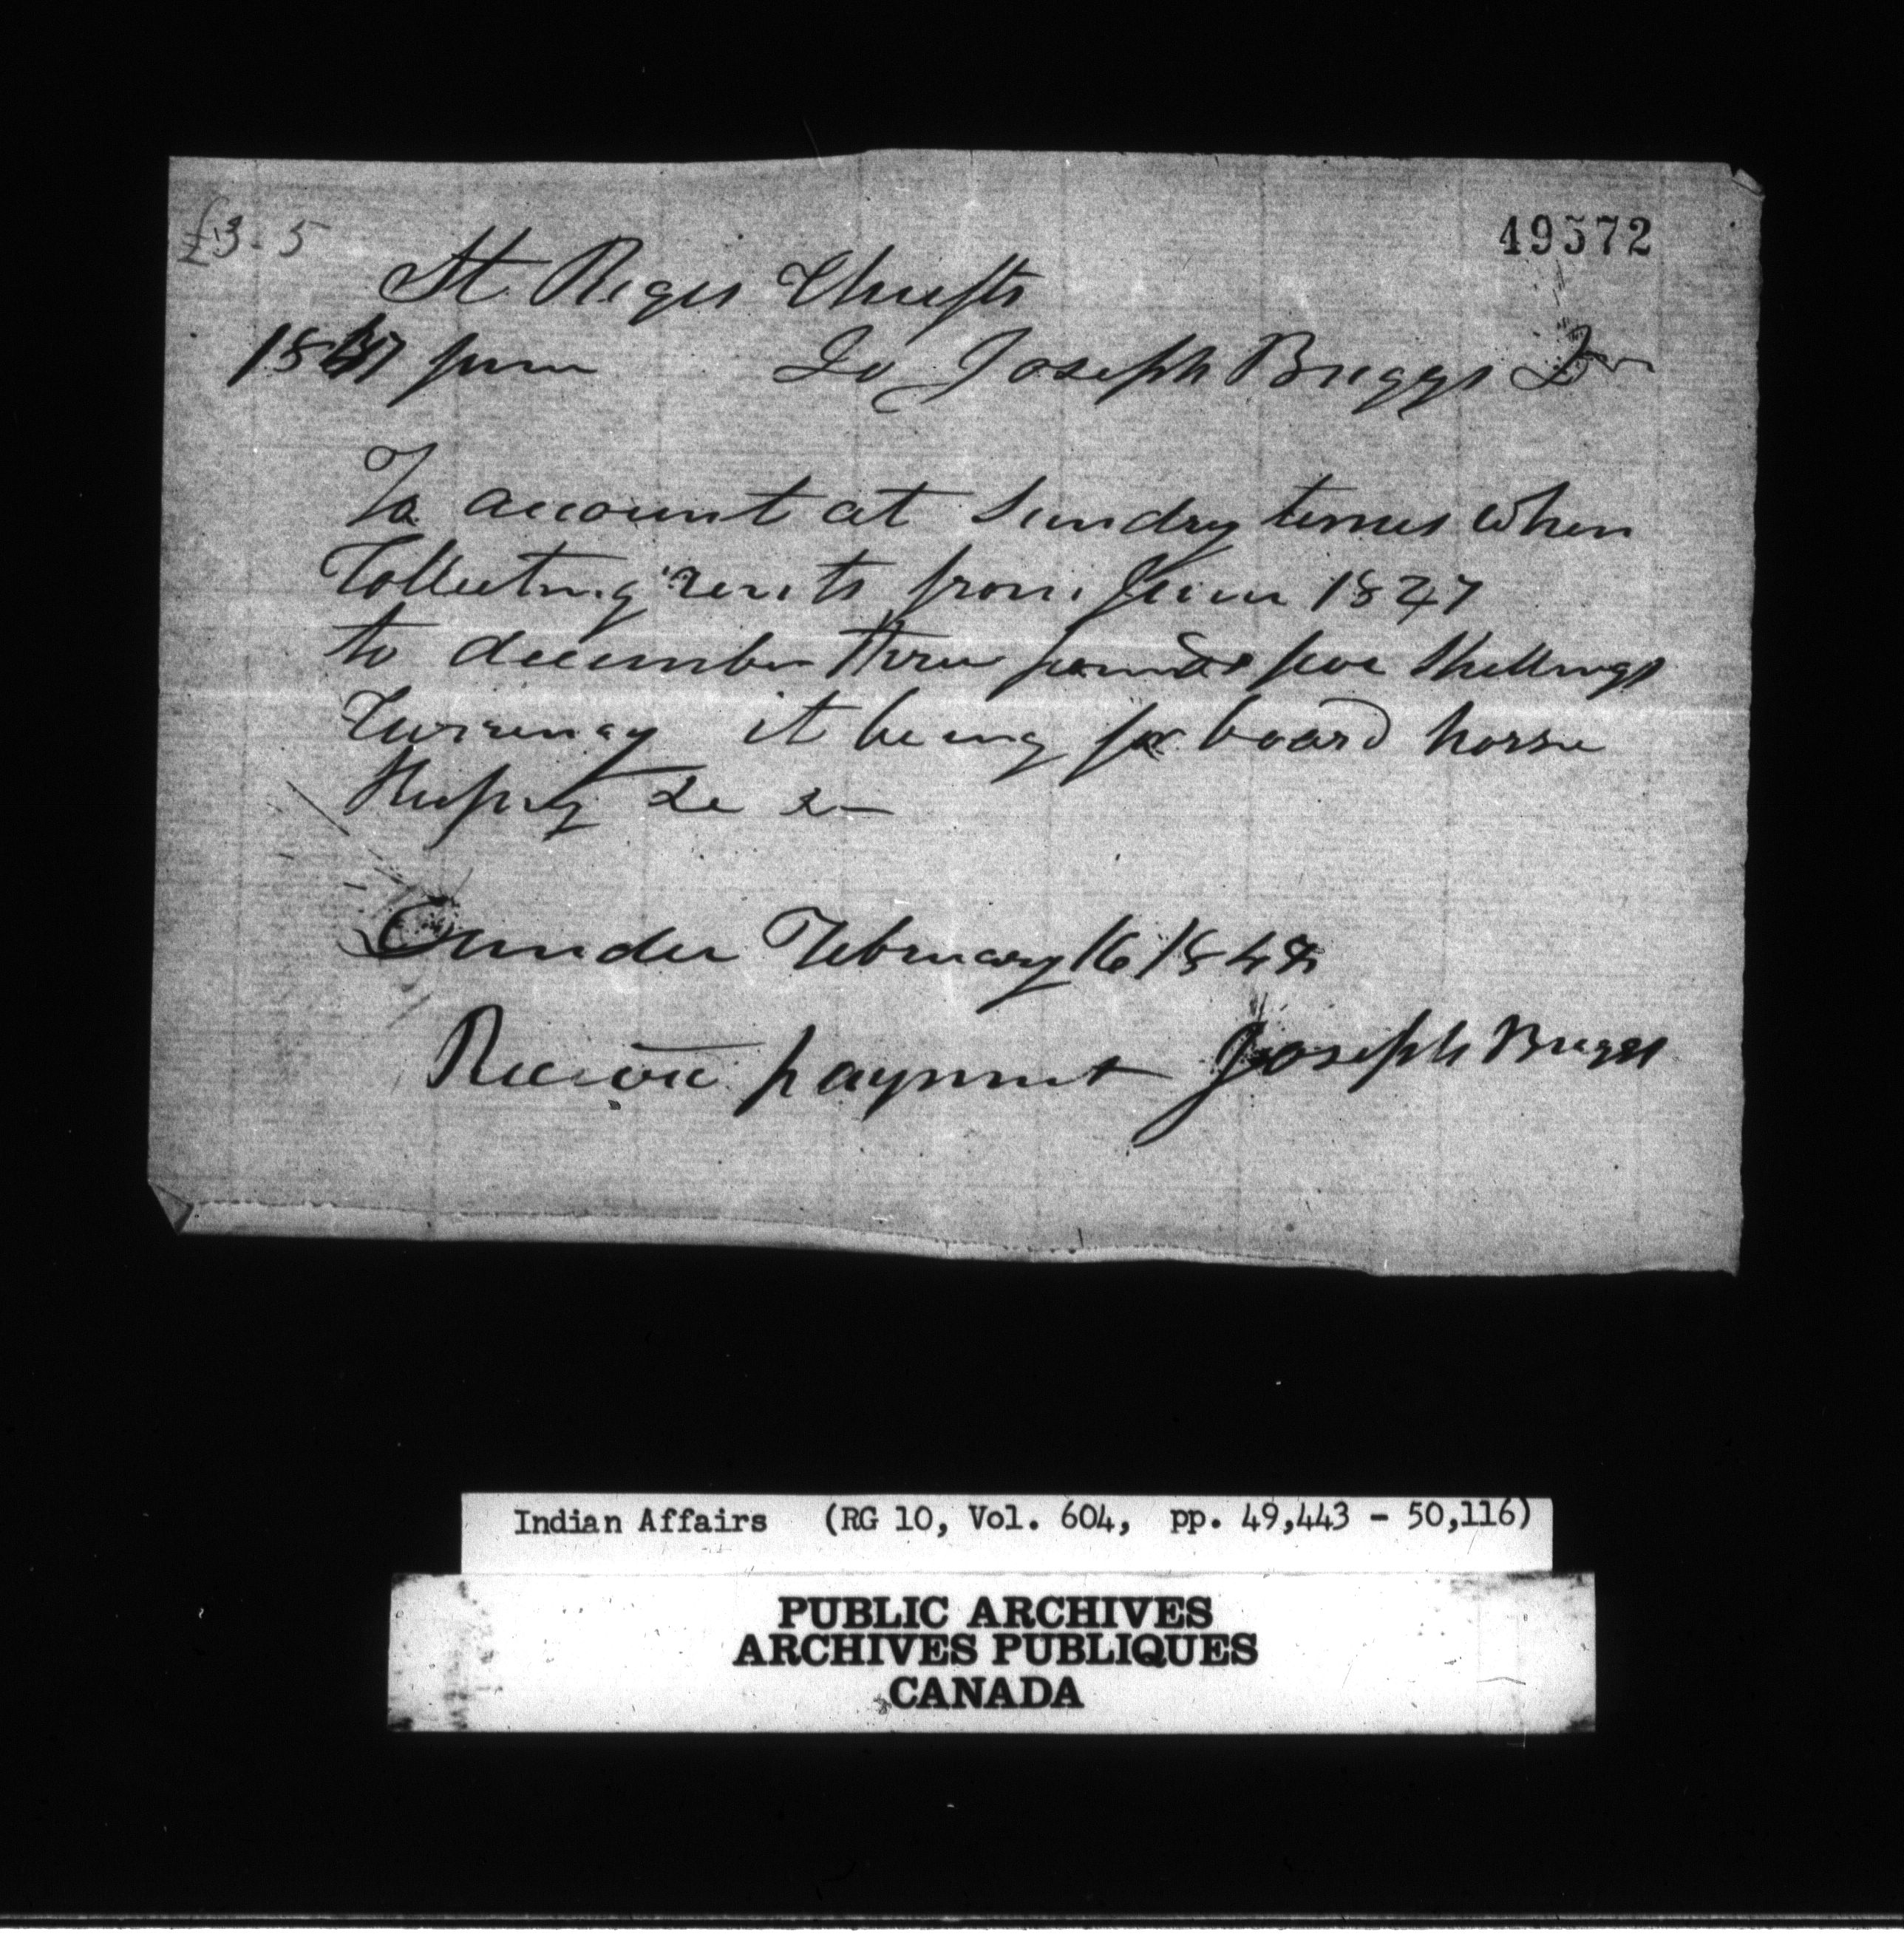 £3-5
49572
St Regis Chiefts
1847 June To Joseph Briggs Dr
To account at Sundry times when
Collecting rents from June 1847
to december three pounds five Shillings
Currency it being for board horse
Keeping &c &c
Dundee February 16 1848
Receive payment Joseph Briggs
Indian Affairs (RG 10, Vol. 604, pp. 49,443 - 50,116)
PUBLIC ARCHIVES
ARCHIVES PUBLIQUES
CANADA